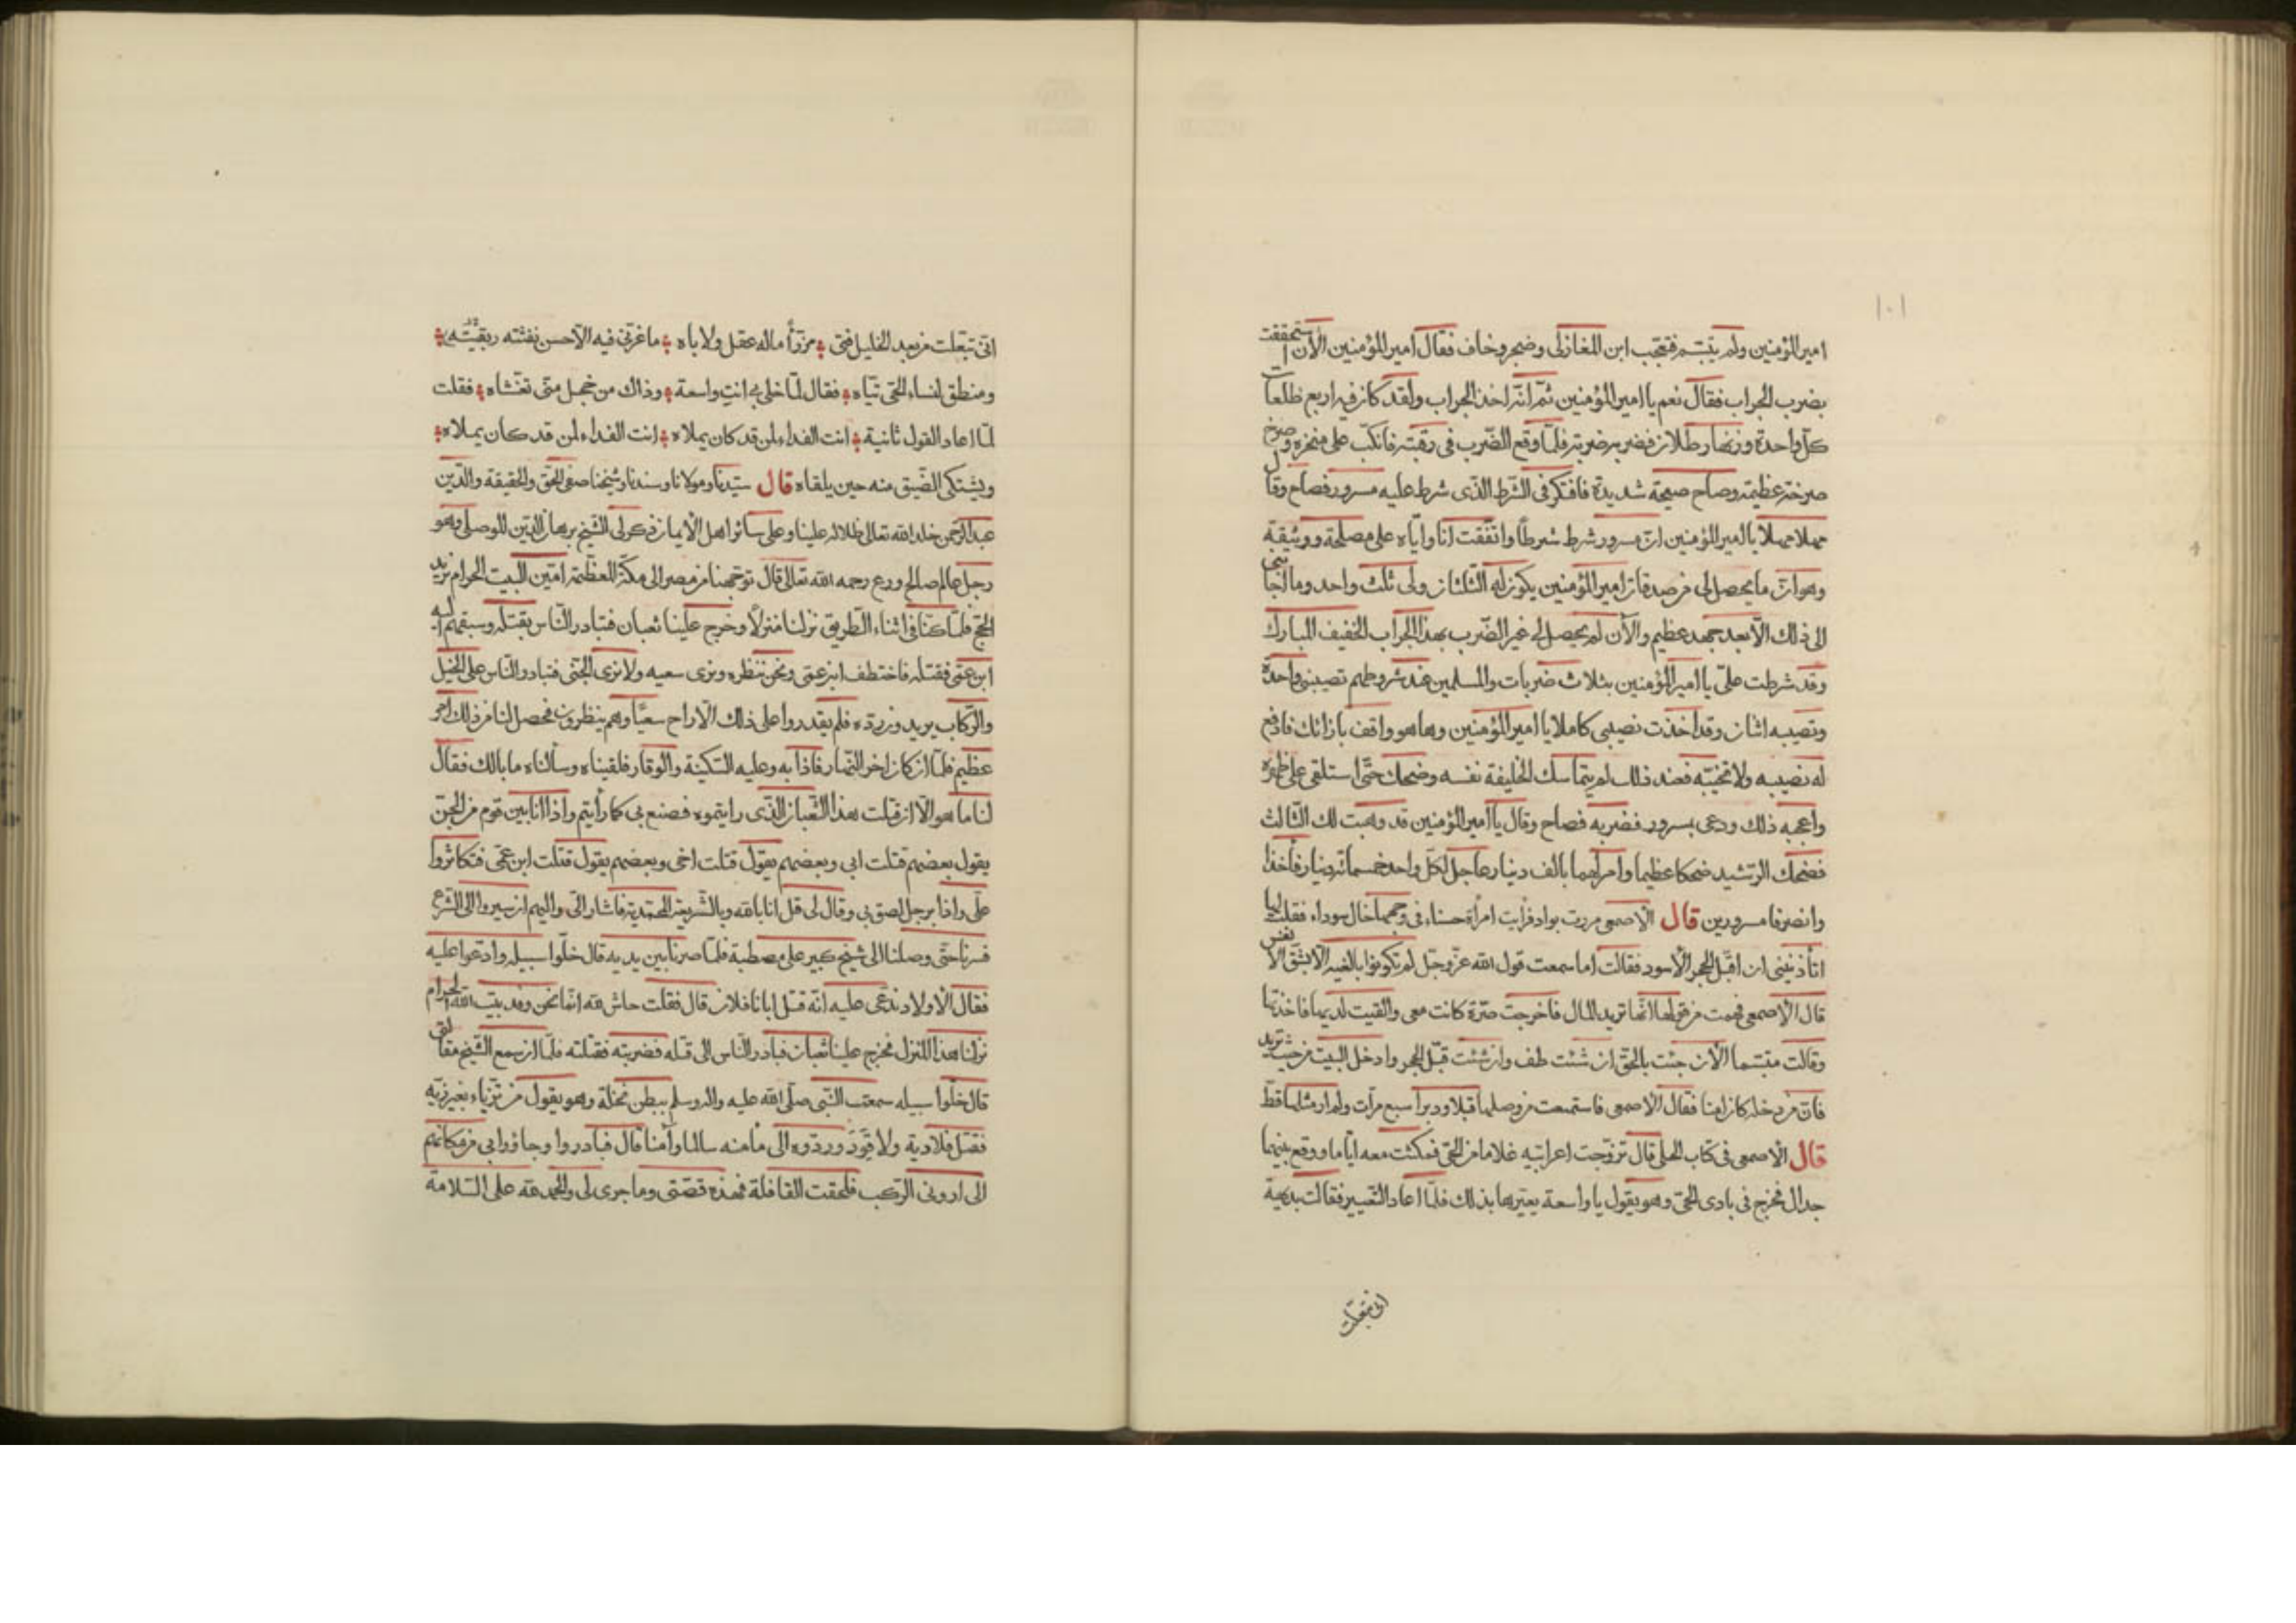 ١٠١
امير المؤمنين ولم يتبسّم فتعجب ابن المغازلى وضجر وخاف فقال امير المؤمنين الآن استحققت
بضرب الجراب فقال نعم يا امير المؤمنين ثمّ انّه اخذ الجراب ولقد كان فيه اربع ظلعات
كلّ واحدة وزنها رطلان فضربه ضربة فلمّا وقع الضّرب فى رقبته فانكبّ على منخره وصرخ
صرخة عظيمة وصاح صيحة شديدة فافتكر فى الشّرط الّذى شرط عليه مسرور فصاح وقال
مهلا مهلا يا امير المؤمنين انّ مسرور شرط شرطاً واتّفقت انا وايّاه على مصلحة ووثيقة
وهو انّ ما يحصل لى من صدقات امير المؤمنين يكون له الثّلثان ولى ثلث واحد وما اجابنى
الى ذلك الّا بعد جهد عظيم والآن لم يحصل لى غير الضّرب بهذا الجراب الخفيف المبارك
وقد شرطت علىّ يا امير المؤمنين بثلاث ضربات والمسلمين عند شروطهم نصيبنى واحدة
ونصيبه اثنان وقد اخذت نصيبى كاملا يا امير المؤمنين وها هو واقف بازائك فادفع
له نصيبه ولا تخيّبه فعند ذلك لم يتماسك الخليفة نفسه وضحك حتّى استلقى على ظهره
واعجبه ذلك ودعى بسرور فضربه فصاح وقال يا امير المؤمنين قد وهبت لك الثّالث
فضحك الرّشيد ضحكا عظيما وامر لهما بالف دينار عاجل لكلّ واحد خمسمائة دينار فاخذا
وانصرفا مسرورين قال الاصمعى مررت بواد فرأيت امرأة حسناء فى وجهها خال سوداء فقلت لها
اتأذنينى ان اقبّل الحجر الاسود فقالت اما سمعت قول الله عزّ وجلّ لم تكونوا بالغيه الّا بشقّ الانفس
قال الاصمعى فهمت من قولها انّها تريد المال فاخرجت صرّة كانت معى والقيت لديها فاخذتها
وقالت مبتسما الآن جئت بالحقّ ان شئت طف وان شئت قبّل الحجر وادخل البيت من حيث تريد
فانّ من دخله كان امنا فقال الاصمعى فاستمتعت من وصلها قبلا ودبرا سبع مرّات ولم ار مثلها قطّ
قال الاصمعى فى كتاب الحلى قال تزوّجت اعرابيّة غلاما من الحىّ فمكثت معه ايّاما ووقع بينهما
جدال فخرج فى بادى الحىّ وهو يقول يا واسعة يعيّرها بذلك فلمّا اعاد التّعيير فقالت بديهة
انّى تبعّلت
انّى تبعّلت من بعد الخليل فتى مرزّأً ماله عقل ولا باه ما غرّنى فيه الّا حسن نقشته
ومنطق لنساء الحىّ تيّاه فقال لمّا خلى بى انت واسعة وذاك من خجل متى تغشّاه فقلت
لمّا اعاد القول ثانية انت الفداء لمن قد كان يملاه انت الفداء لمن قد كان يملاه
ويشتكى الضّيق منه حين يلقاه قال سيّدنا ومولانا وسندنا وشيخنا صفى الحقّ والحقيقة والدّين
عبد الرّحمن خلد الله تعالى ظلاله علينا وعلى سائر اهل الايمان ذكر لى الشّيخ برهان الدّين الموصلى وهو
رجل عالم صالح ورع رحمه الله تعالى قال توجّهنا من مصر الى مكّة المعظّمة امّين البيت الحرام نريد
الحجّ فلمّا كنّا فى اثناء الطّريق نزلنا منزلاً وخرج علينا ثعبان فتبادر النّاس بقتله وسبقهم اليه
ابن عمّى فقتله فاختطف ابن عمّى ونحن ننظره ونرى سعيه ولا نرى الجنّى فتبادر النّاس على الخيل
والرّكاب يريدون ردّه فلم يقدروا على ذلك الّا راح سعيًا وهم ينظرون فحصل لنا من ذلك امر
عظيم فلمّا ان كان اخر النّهار فاذا به وعليه السّكينة والوقار فلقيناه وسألناه ما بالك فقال
لنا ما هو الّا ان قتلت هذا الثّعبان الّذى رايتموه فصنع بى كما رأيتم واذا انا بين قوم من الجنّ
يقول بعضهم قتلت ابى وبعضهم يقول قتلت اخى وبعضهم يقول قتلت ابن عمّى فتكاثروا
علىّ واذا برجل لصق بى وقال لى قل انا بالله وبالشّريعة المحمّدية فاشار الىّ واليهم ان سيروا الى الشّرع
فسرنا حتّى وصلنا الى شيخ كبير على مصطبة فلمّا صرنا بين يديه قال خلّوا سبيله وادّعوا عليه
فقال الاولاد ندّعى عليه انّه قتل ابانا فلان قال فقلت حاش لله انّما نحن وفد بيت الله الحرام
نزلنا هذا المنزل فخرج علينا ثعبان فبادر النّاس الى قتله فضربته فقتلته فلمّا ان سمع الشّيخ مقالتى
قال خلّوا سبيله سمعت النّبى صلّى الله عليه واله وسلم ببطن نخلة وهو يقول من تزيّاء بغير زيّه
فقتل فلا دية ولا قود وردّوه الى مأمنه سالما وآمنا قال فبادروا وجاؤا بى من مكانهم
الى ان رونى الرّكب فلحقت القافلة فهذه قصّتى وما جرى لى والحمد لله على السّلامة